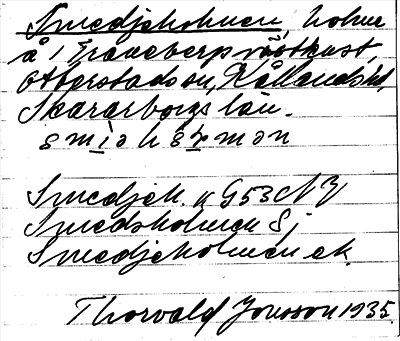 Smedjeholmen, holme
å Traneberg västkust,
Otterstads sn, Kållands hd,
Skaraborgs län.
smi̲ə h ərmən
Smedjeh. G53 NV
Smedsholmen Sj
Smedjeholmen ek.
Thorvald Jonsson 1935.